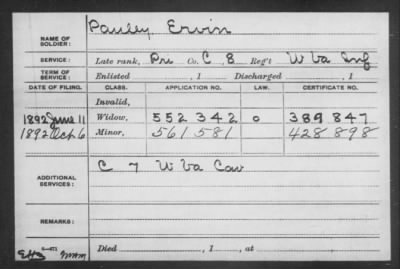 NAME OF SOLDIER: Pauley, Ervin
SERVICE: Late rank, Pri Co. C, 8 Reg't W Va Inf
TERM OF SERVICE: Enlisted , 1 Discharged , 1
DATE OF FILING. CLASS. APPLICATION NO. LAW. CERTIFICATE NO.
Invalid,
1892 June 11 Widow, 552 342 o 389 847
1892 Oct 6 Minor, 561 581 428 898
ADDITIONAL SERVICES: C 7 W Va Cav
REMARKS:
Died , 1 , at